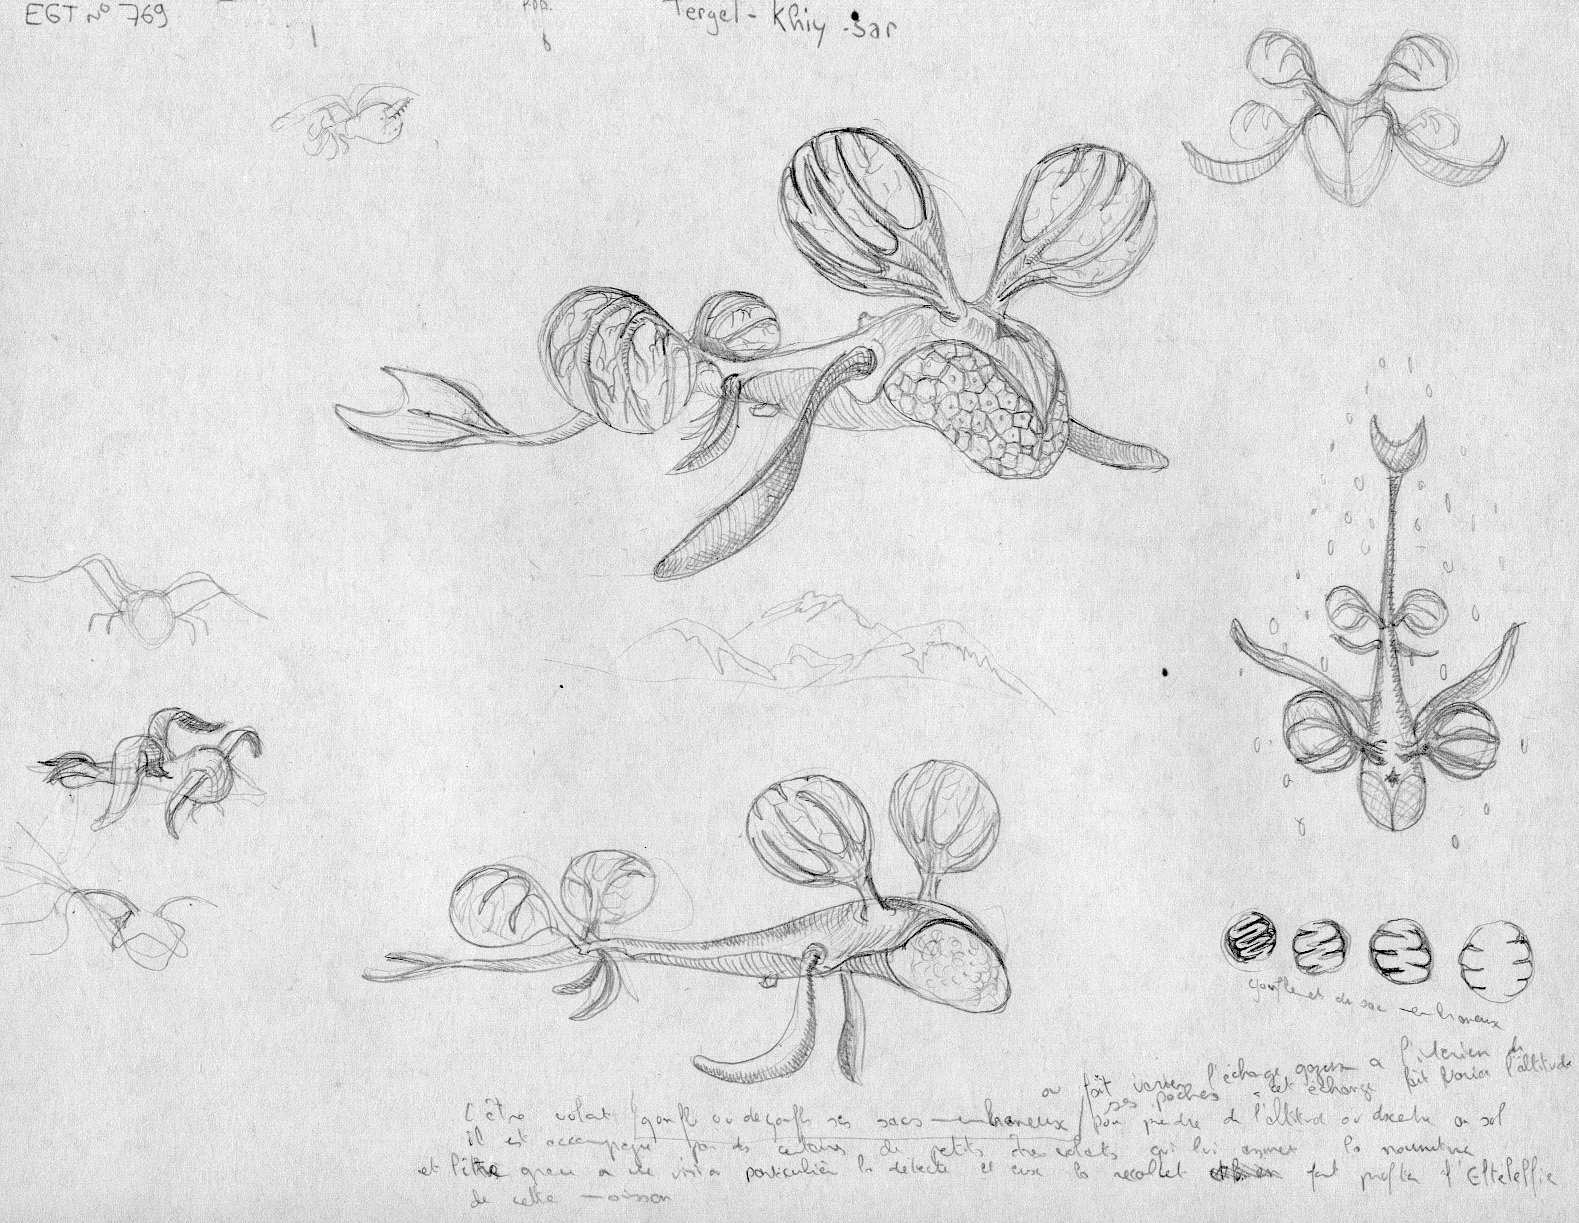 EGT Nº 769
Tergel - Khiy - Sar
gonflement du sac membraneux
ou fait varier l'échange gazeux a l'interieur de
ses poches - cet échange fait varier l'altitude
L'être volat gonfle ou degonfle ses sacs membraneux pour prendre de l'altitud ou descendre au sol
il est accompagné par des centaines de petits êtres volants qui lui amenent la nourriture
et l'être grace a une vision particulière la détecte et eux la recoltent font profiter l'Efteleffie
de cette moisson